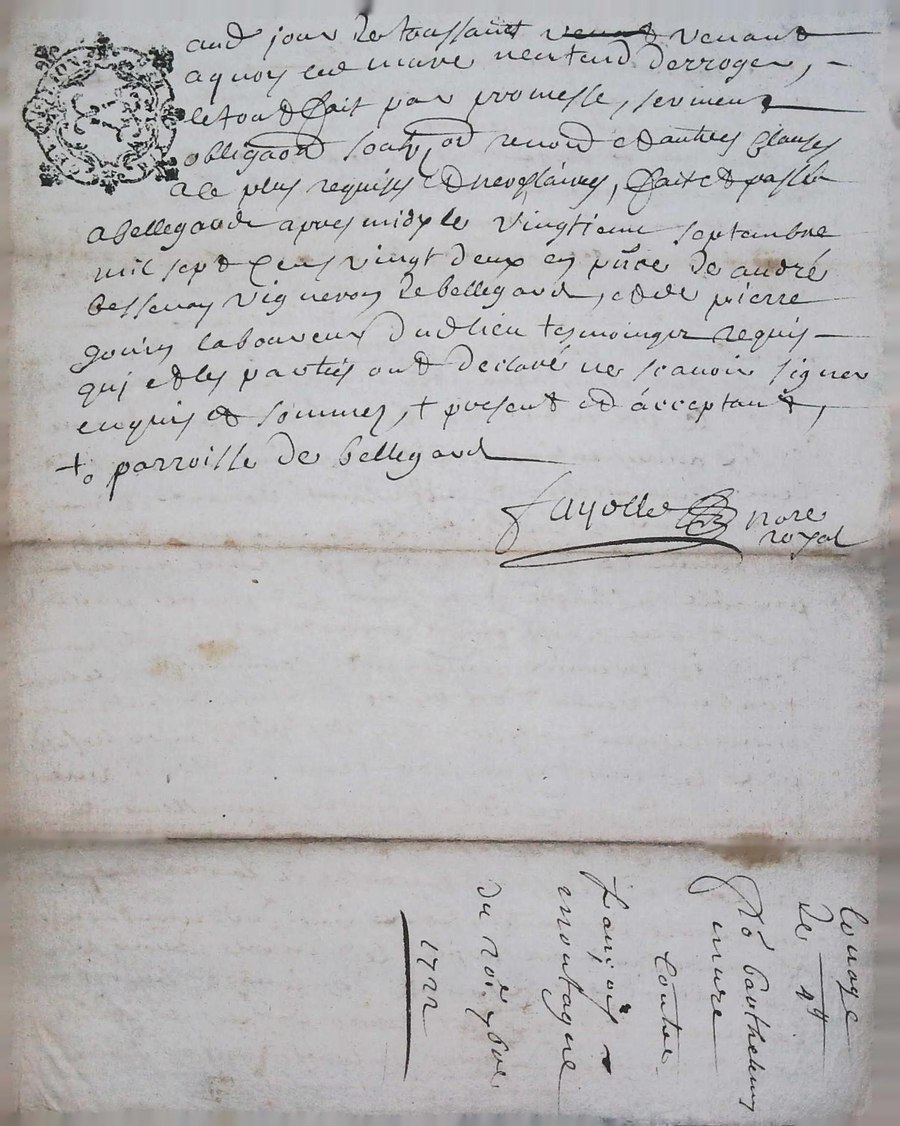 aud jour de toussainct venant venant
a quoy led mure nentend derroger,
le tout fait par promesse, serment
obligaon soub, on renon et autres clauses
a ce plus requises et necessaires, fait et passé
a bellegarde apres midy le vingtieme septembre
mil sept cens vingt deux en pnce de andré
vigneron de bellegarde, et de pierre
laboureur dud lieu tesmoingz requis
qui et les parties ont declaré ne scavoir signer
enquis et sommez, + present et acceptant,
+ parroisse de bellegarde
fayolle nore
royal
louage
de 4#
Po barthelemy
mure
contre
françois
montagne
du 20e 7bre
1722